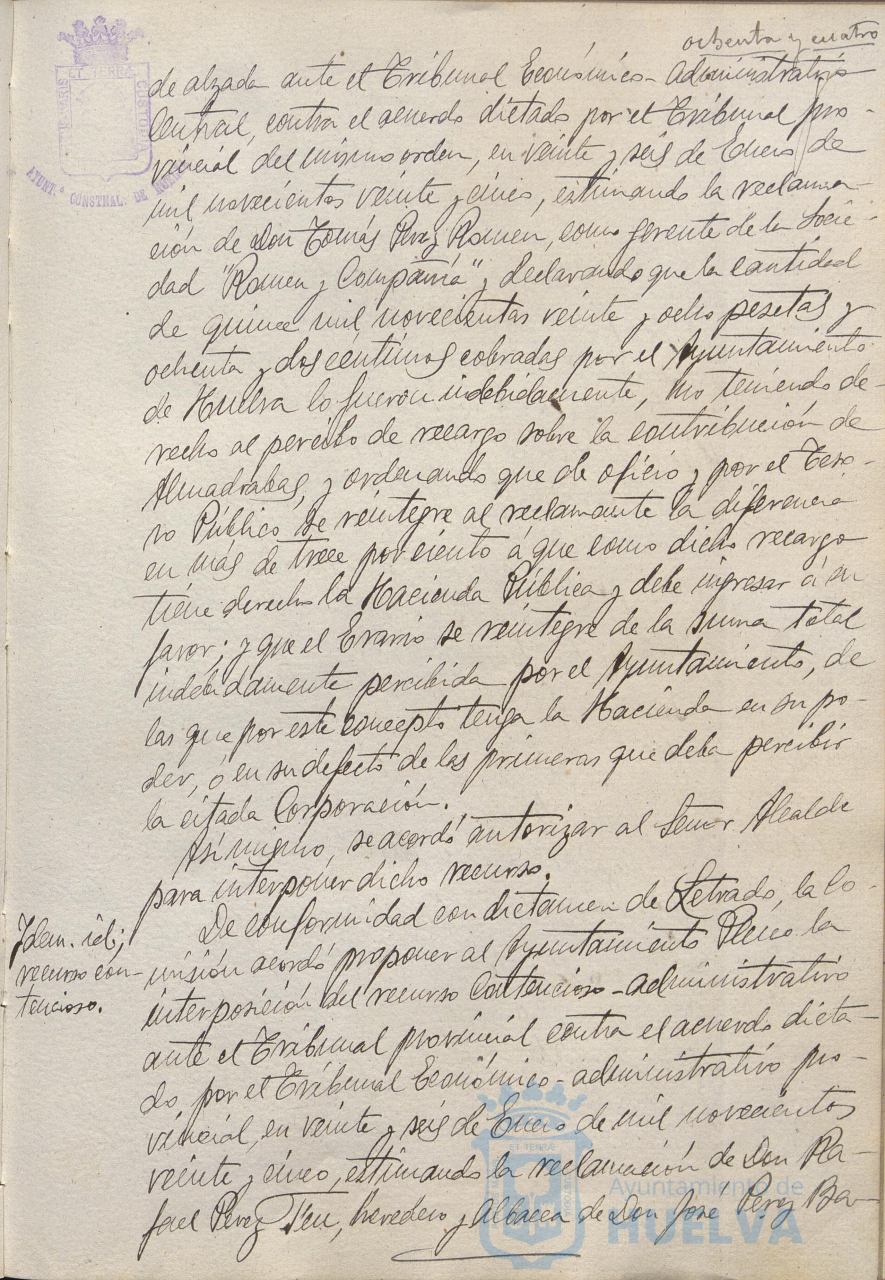 ochenta y cuatro
de alzada ante el Tribunal Económico-Administrativo
Central, contra el acuerdo dictado por el Tribunal pro-
vincial del mismo orden, en veinte y seis de Enero de
mil novecientos veinte y cinco, estimando la reclama-
ción de Don Tomás Perez Romeu, como gerente de la Socie-
dad "Romeu y Compañía" y declarando que la cantidad
de quince mil novecientas veinte y ocho pesetas y
ochenta y dos céntimos cobradas por el Ayuntamiento
de Huelva lo fueron indebidamente, no teniendo de-
recho al percibo de recargo sobre la contribución de
Almadrabas, y ordenando que de oficio y por el Teso-
ro Público se reintegre al reclamante la diferencia
en más de trece por ciento á que como dicho recargo
tiene derecho la Hacienda Pública y debe ingresar á su
favor; y que el Erario se reintegre de la suma total
indebidamente percibida por el Ayuntamiento, de
las que por este concepto tenga la Hacienda en su po-
der, ó en su defecto de las primeras que deba percibir
la citada Corporación.
Asimismo, se acordó autorizar al Señor Alcalde
para interponer dicho recurso.
Idem. id;
recurso con-
tencioso.
De conformidad con dictamen de Letrado, la Co-
misión acordó proponer al Ayuntamiento Pleno la
interposición del recurso Contencioso-administrativo
ante el Tribunal provincial contra el acuerdo dicta-
do por el Tribunal Económico-administrativo pro-
vincial, en veinte y seis de Enero de mil novecientos
veinte y cinco, estimando la reclamación de Don Ra-
fael Perez Feu, heredero y Albacea de Don José Perez Ba-
AYUNT.º CONSTNAL. DE
Ayuntamiento de
HUELVA